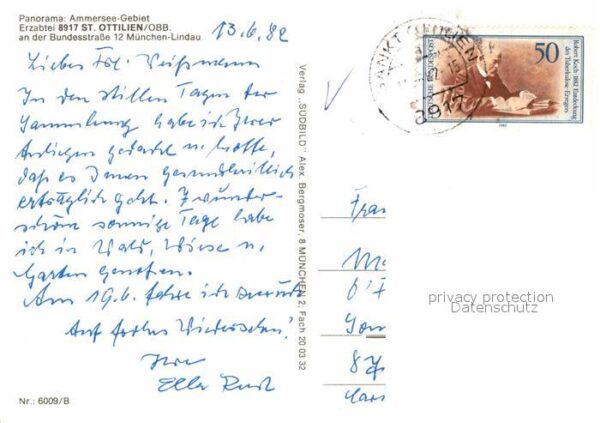 Panorama: Ammersee-Gebiet
Erzabtei 8917 ST. OTTILIEN/OBB.
an der Bundesstraße 12 München-Lindau
13.6.82
Liebes Frl. Weißmann
In den stillen Tagen der
Sammlung habe ich Ihrer
gedacht u. hoffe,
daß es Ihnen gesundheitlich
erträglich geht. Zwei wunder-
schöne sonnige Tage habe
ich in Wald, Wiese u.
Garten genossen.
Am 19.6. fahre ich zurück
Auf frohes Wiedersehen!
Ihre
Ella
Nr.: 6009/B
Verlag „SÜDBILD" Alex. Bergmoser, 8 MÜNCHEN 2, Fach 20 03 32
SANKT OTTILIEN
8917
50
Robert Koch 1882 Entdeckung
des Tuberkulose Erregers
DEUTSCHE BUNDESPOST
1982
privacy protection
Datenschutz